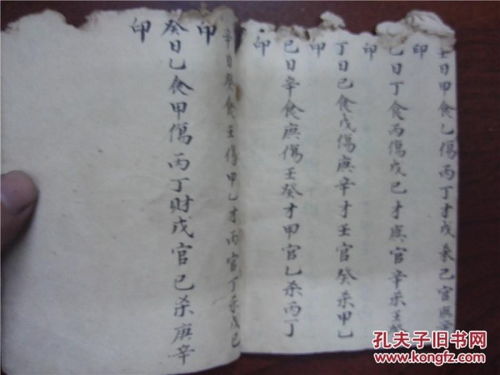 壬日甲食乙傷丙丁才戊杀己官庚
印
乙日丁食丙傷戊己才庚官辛杀壬
印
丁日己食戊傷庚辛才壬官癸杀甲乙
印
己日辛食庚傷壬癸才甲官乙杀丙丁
印
辛日癸食壬傷甲乙才丙官丁杀戊己
印
癸日乙食甲傷丙丁財戊官己杀庚辛
印
孔夫子旧书网
www.kongfz.com